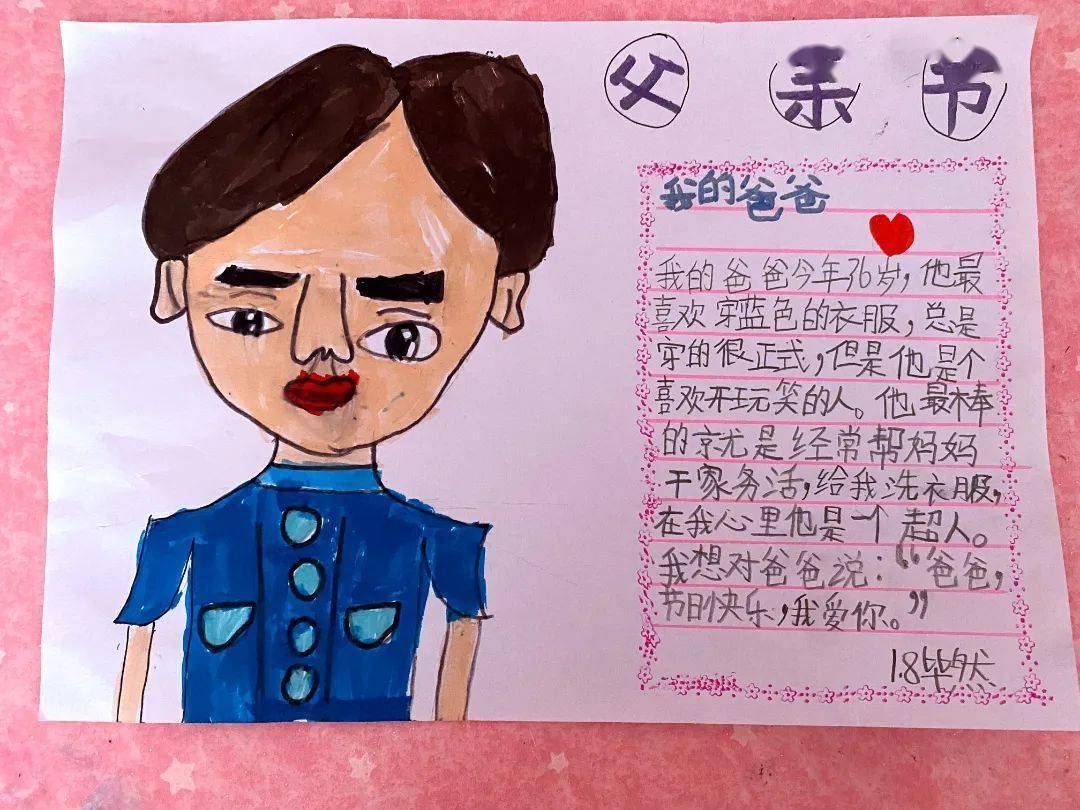 父亲节
我的爸爸
我的爸爸今年36岁，他最
喜欢穿蓝色的衣服，总是
穿的很正式，但是他是个
喜欢开玩笑的人。他最棒
的京尤是经常帮妈妈
干家务活，给我洗衣服，
在我心里他是一个超人。
我想对爸爸说：“爸爸，
节日快乐，我爱你。”
1.8毕然